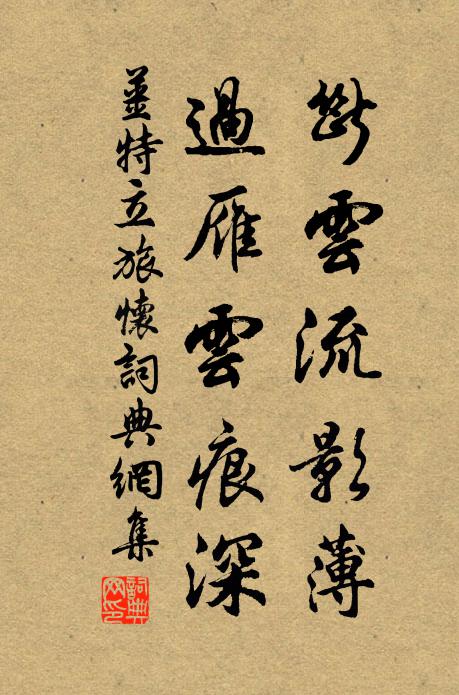 斷雲流影薄
過雁雲痕深
姜特立旅懷詞典網集
詞典網印